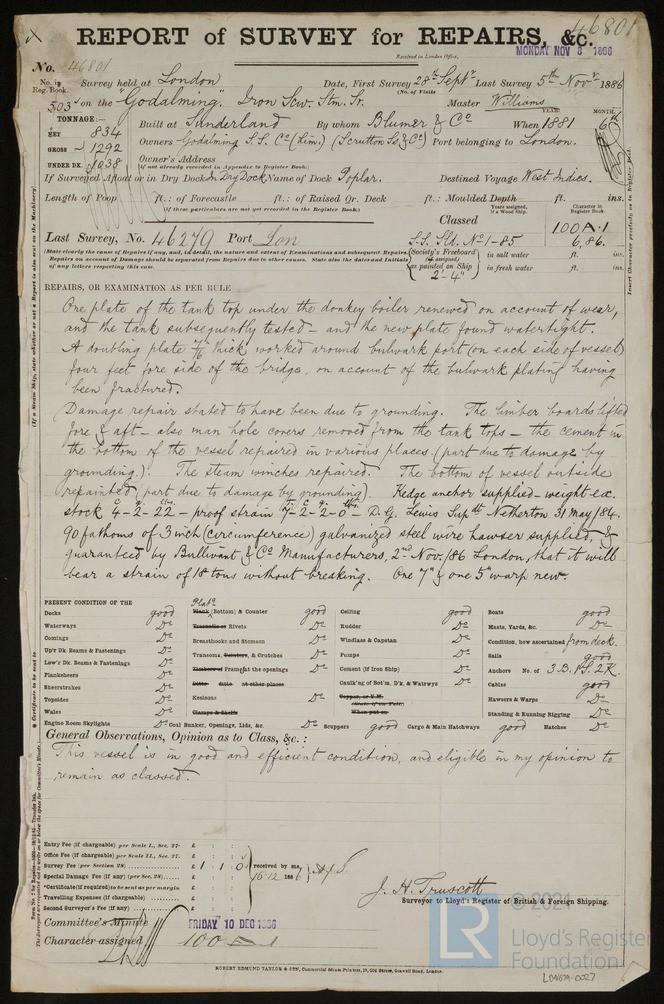 46801
REPORT OF SURVEY for REPAIRS, &c.
Received in London Office,
MONDAY NOV 8 1886
No. 46801
No. in Reg. Book.
Survey held at London Date, First Survey 28th Septr Last Survey 5th Novr 1886
(No. of Visits
503 on the "Godalming" Iron Scw. Stm. Sr. Master Williams
TONNAGE:—
NET 834
GROSS 1292
UNDER DK. 1038
YEAR. MONTH.
Built at Sunderland By whom Blumer & Co When 1881 6th
Owners Godalming S.S. Co (Lim.) (Scrutton Ss & Co) Port belonging to London.
Owner's Address
(if not already recorded in Appendix to Register Book)
If Surveyed Afloat or in Dry Dock In Dry Dock Name of Dock Poplar. Destined Voyage West Indies.
Length of Poop ft.: of Forecastle ft.: of Raised Qr. Deck ft.: Moulded Depth ft. ins.
(If these particulars are not yet recorded in the Register Book)
Years assigned, if a Wood Ship. Character in Register Book
Classed 100A.1
Last Survey, No. 46279 Port Lon S.S. Sld. No 1-85 6,86.
(State clearly the cause of Repairs if any, and, in detail, the nature and extent of Examinations and subsequent Repairs. Repairs on account of Damage should be separated from Repairs due to other causes. State also the dates and Initials of any letters respecting this case.
Society's Freeboard (if assigned) as painted on Ship 2-4" in salt water ft. ins.
in fresh water ft. ins.
REPAIRS, OR EXAMINATION AS PER RULE
One plate of the tank top under the donkey boiler renewed on account of wear,
and the tank subsequently tested — and the new plate found watertight.
A doubling plate 7/16 thick worked around bulwark port (on each side of vessel)
four feet fore side of the bridge, on account of the bulwark plating having
been fractured.
Damage repair stated to have been due to grounding. The limber boards lifted
fore & aft — also man hole covers removed from the tank tops — the cement in
the bottom of the vessel repaired in various places. (part due to damage by
grounding.) The steam winches repaired. The bottom of vessel outside
repainted (part due to damage by grounding). Kedge anchor supplied — weight ex.
stock 4-2-22 — proof strain 7-2-2-0 — D. G. Lewis Supdt Netherton 31 May/84.
90 fathoms of 3 inch (circumference) galvanized steel wire hawser supplied, &
guaranteed by Bullivant & Co Manufacturers, 2nd Nov./86 London, that it will
bear a strain of 18 tons without breaking. One 7" & one 5" warp new.
PRESENT CONDITION OF THE
Decks good
Waterways Do
Comings Do
Up'r Dk. Beams & Fastenings Do
Low'r Dk. Beams & Fastenings Do
Planksheers Do
Sheerstrakes Do
Topsides Do
Wales Do
Engine Room Skylights Do
Plank Plate (Bottom) & Counter good
Treenails or Rivets Do
Breasthooks and Stemson Do
Transoms, Pointers, & Crutches Do
Timbers of Frame at the openings Do
Ditto ditto at other places
Keelsons Do
Clamps & Shelfs
Coal Bunker, Openings, Lids, &c. Do
Ceiling good
Rudder Do
Windlass & Capstan Do
Pumps Do
Cement (if Iron Ship) Do
Caulk'ng of Bot'm, D'k, & Waterwys Do
Copper, or Y.M.
When put on
Scuppers good Cargo & Main Hatchways good Hatches Do
Boats good
Masts, Yards, &c. Do
Condition, how ascertained from deck.
Sails good
Anchors No. of 3 B. 1 S. 2 K.
Cables good
Hawsers & Warps Do
Standing & Running Rigging Do
General Observations, Opinion as to Class, &c.:
This vessel is in good and efficient condition, and eligible in my opinion to
remain as classed.
Entry Fee (if chargeable) per Scale I., Sec. 27. £ : :
Office Fee (if chargeable) per Scale II., Sec. 27. £ : :
Survey Fee (per Section 28) £ 1 : 1 : 0
Special Damage Fee (if any) (per Sec. 28) £ : :
*Certificate (if required) to be sent as per margin
Travelling Expenses (if chargeable) £ : :
Second Surveyor's Fee (if any) £ : :
received by me, 16.12 1886
J. H. Truscott
Surveyor to Lloyd's Register of British & Foreign Shipping.
Committee's Minute FRIDAY 10 DEC 1886
Character assigned 100 A 1
ROBERT EDMUND TAYLOR & SON, Commercial Steam Printers, 19, Old Street, Goswell Road, London.
LR
© 2021
Lloyd's Register
Foundation
LON679-0027